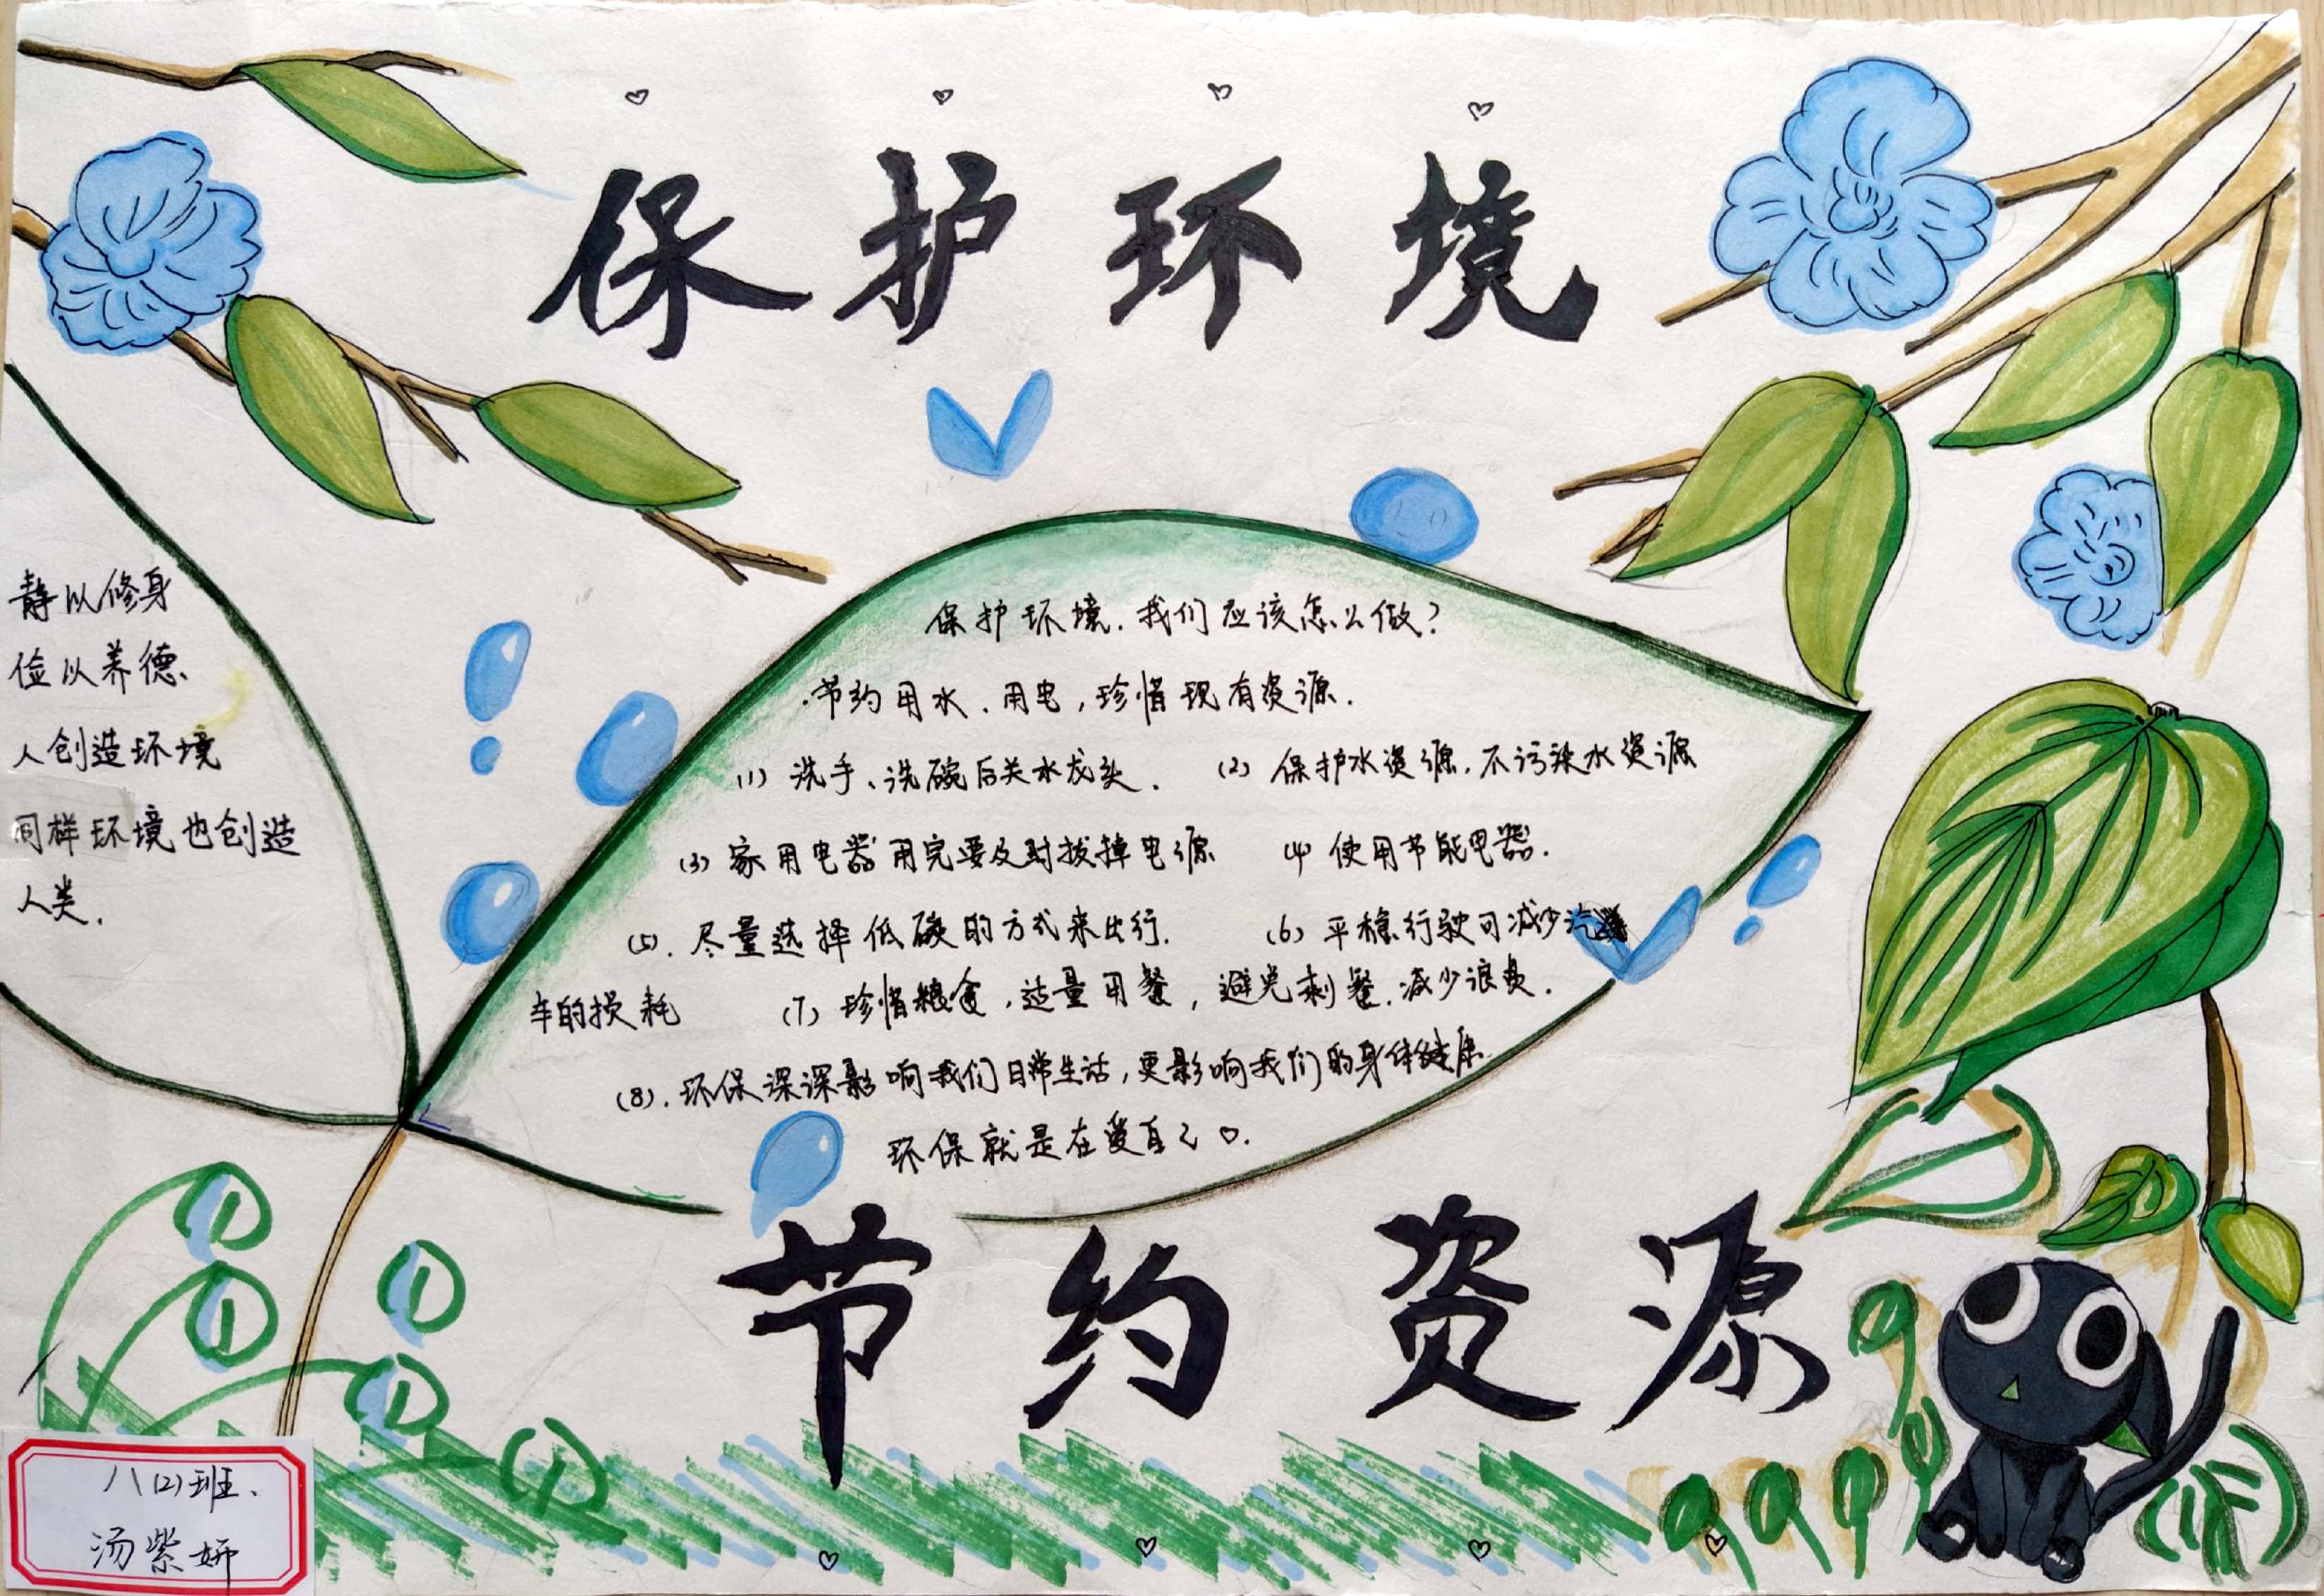 保护环境
静以修身
俭以养德、
人创造环境
同样环境也创造
人类.
保护环境.我们应该怎么做?
·节约用水、用电,珍惜现有资源.
(1) 洗手、洗碗后关水龙头. (2) 保护水资源.不污染水资源
(3) 家用电器用完要及时拔掉电源 (4) 使用节能电器.
(5). 尽量选择低碳的方式来出行. (6) 平稳行驶可减少汽
车的损耗 (7) 珍惜粮食,适量用餐,避免剩餐.减少浪费.
(8).环保深深影响我们日常生活,更影响我们的身体健康
环保就是在爱自己♡.
节约资源
八(2)班、
汤紫妍